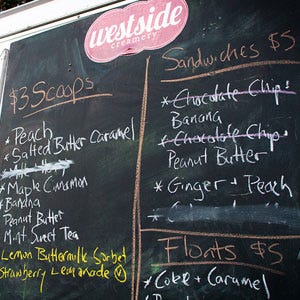 westside
creamery
$3 Scoops
* Peach
* Salted Butter Caramel
* Maple Cinnamon
* Banana
Peanut Butter
Mint Sweet Tea
Lemon Buttermilk Sorbet
Strawberry Lemonade V
Sandwiches $5
* Chocolate Chip
Banana
* Chocolate Chip
Peanut Butter
* Ginger + Peach
Floats $5
* Coke + Caramel